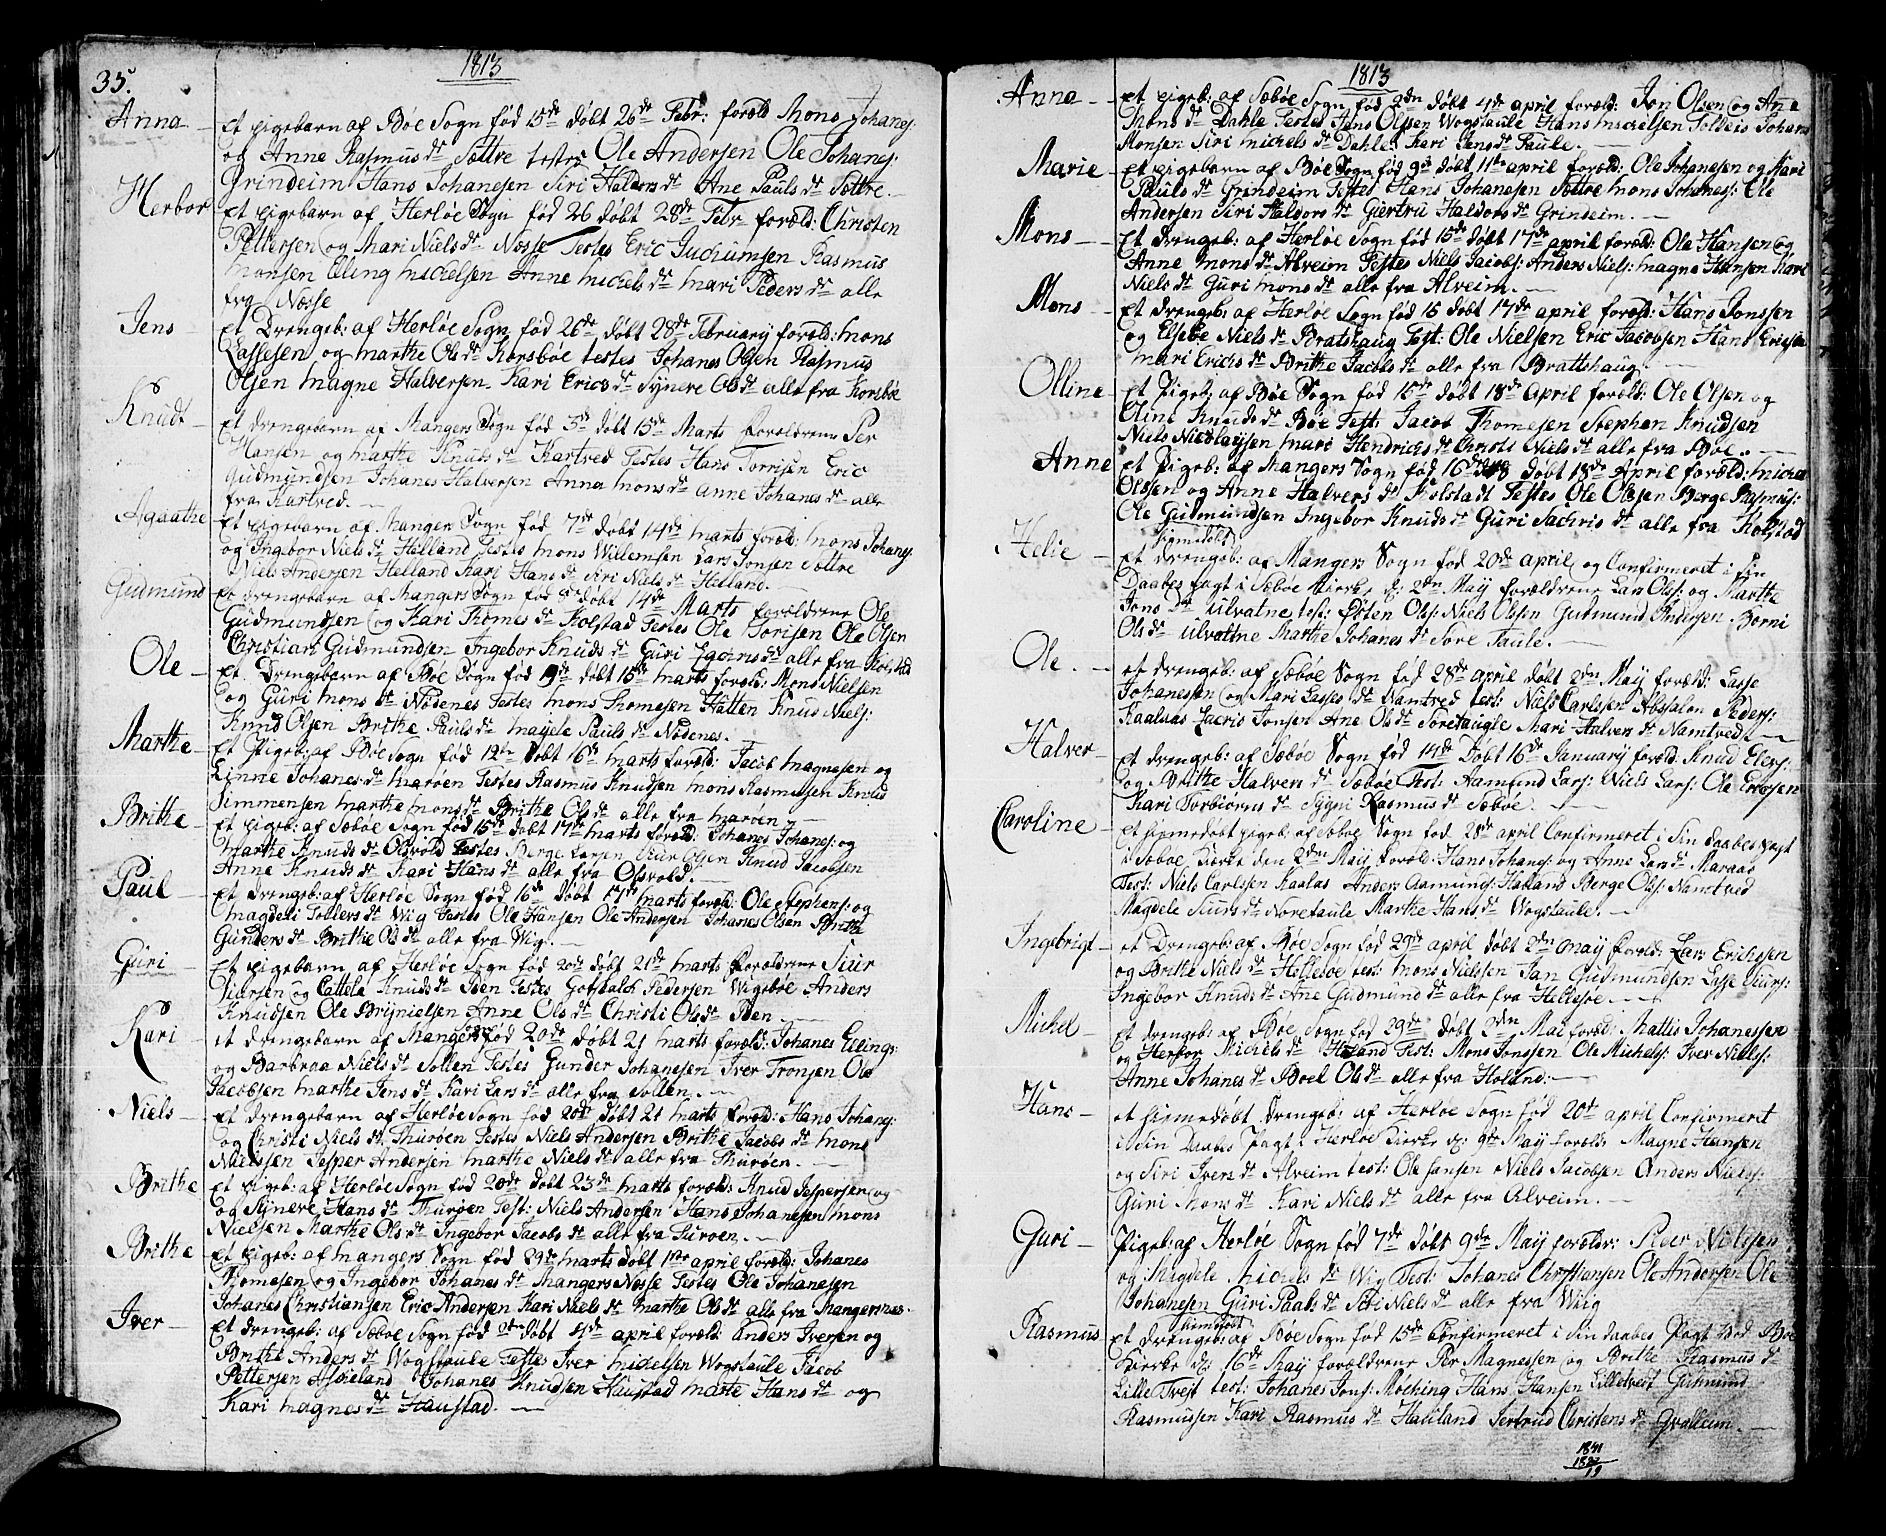 35.
1813
Anna – Et pigebarn af Bøe Sogn fød 15de døbt 26de Febr: foræld Mons Johanes:
og Anne Rasmus dr Søttre testes Ole Andersen Ole Johanes:
Grindeim Hans Johanesen Siri Haldors dr Ane Pauls dr Søttre. –
Herbor Et pigebarn af Herløe Sogn fød 26 døbt 28de Febr foræld: Christen
Pettersen og Mari Niels dr Næsse Testes Eric Gudumsen Rasmus
Monsen Elling Mickelsen Anne Mickels dr Mari Peders dr alle
fra Næsse
Jens – Et Drengeb: af Herløe Sogn fød 26de døbt 28de February foræld: Mons
Lassesen og Marthe Ols dr Korsbøe testes Johanes Olsen Rasmus
Olsen Magne Halversen Kari Erics dr Synere Ols dr alle fra Korsbøe
Knudt – Et drengebarn af Mangers Sogn fød 5de døbt 15de Marts forældrene Per
Hansen og Marthe Knuds dr Kartved Testes Hans Torrisen Eric
Gudmundsen Johanes Halversen Anna Mons dr Anne Johanes dr alle
fra Kartved. –
Agaathe Et pigebarn af Manger Sogn fød 7de døbt 14de Marts foræld: Mons Johanes:
og Ingebor Niels dr Helland Testes Mons Willemsen Lars Jonsen Søttre
Niels Andersen Helland Kari Hans dr Siri Niels dr Helland.
Gudmund Et drengebarn af Manger Sogn fød 8de døbt 14de Marts forældrene Ole
Gudmundsen og Kari Thomes dr Kolstad Testes Ole Torisen Ole Olsen
Christian Gudmundsen Ingebor Knuds dr Guri Zacris dr alle fra Kolstad
Ole – Et Drengebarn af Bøe Sogn fød 9de døbt 15de Marts foræld: Mons Nielsen
og Guri Mons dr Nødenes Testes Mons Thomesen Hatten Knud Niels:
Knud Olsen Brithe Pauls dr Magele Pauls dr Nødenes. –
Marthe – Et Pigeb: af Bøe Sogn fød 12te døbt 16de Marts foræld: Jacob Magnesen og
Linne Johanes dr Marøen Testes Rasmus Knudsen Mons Rasmusen Knud
Simmensen Marthe Mons dr Brithe Ols dr alle fra Marøen –
Brithe – Et pigeb: af Sæbøe Sogn fød 15de døbt 17de Marts foræld: Johanes Johanes: og
Marthe Knuds dr Olsvold Testes Berge Larsen Siur Olsen Knud Jacobsen
Anne Knuds dr Kari Hans dr alle fra Olsvold. –
Paul – Et drengeb: af Herløe Sogn fød 16de døbt 17de Marts foræld: Ole Stephens: og
Magdeli Tollers dr Wiig Testes Ole Hansen Ole Andersen Johanes Olsen Brithe
Gunders dr Brithe Ols dr alle fra Wiig. –
Guri – Et pigebarn af Herløe Sogn fød 20de døbt 21de Marts forældrene Siur
Siursen og Cattela Knuds dr Iden Testes Gotskalch Pedersen Wigebøe Anders
Knudsen Ole Brynielsen Anne Ols dr Christi Ols dr Iden –
Kari – et drengebarn af Mangers Sogn fød 20de døbt 21 Marts foræld: Johanes Ellings:
og Barbraa Niels dr Sollen Testes Gunder Johanesen Iver Tronsen Ole
Jacobsen Marthe Jens dr Kari Lars dr alle fra Sollen. –
Niels – Et Drengebarn af Herløe Sogn fød 20de døbt 21 Marts foræld: Hans Johanes:
og Christi Niels dr Thurøen Testes Niels Andersen Brithe Jacobs dr Mons
Nielssen Jesper Andersen Marthe Niels dr alle fra Thurøen. –
Brithe Et pigeb: af Herløe Sogn fød 20de døbt 23de Marts foræld: Knud Jespersen og
og Synere Hans dr Thurøen Test: Niels Andersen Hans Johanesen Mons
Nielsen Marthe Ols dr Ingebor Jacobs dr alle fra Turøen. –
Brithe – Et pigeb: af Mangers Sogn fød 29de Marts døbt 1ste april foræld: Johanes
Thomesen og Ingebor Johanes dr Mangers Næsse Testes Ole Johanesen
Johanes Christiansen Eric Andersen Kari Niels dr Marthe Ols dr alle fra Mangersnæs.
Iver – Et drengeb: af Sæbøe Sogn fød 2den døbt 4de april foræld: Anders Iversen og
Brithe Anders dr Wogstaule Testes Iver Mickelsen Wogstaule Jacob
Pettersen Høieland Johanes Knudsen Haustad Marte Hans dr og
Kari Magnes dr Haustad. –
1813
Anna – Et pigeb: af Sæbøe Sogn fød 2den døbt 4de april foræld: Jon Olsen og Ane
Mons dr Dahle Testes Hans Olsen Wogstaule Hans Mickelsen Solleis Johan
Monsen Siri Mickels dr Dahle Kari Jens dr Taule. –
Marie – Et pigebarn af Bøe Sogn fød 9de døbt 11te april foræld: Ole Johanesen og Kari
Pauls dr Grindeim Testes Hans Johanesen Søttre Mons Johanes: Ole
Andersen Siri Haldors dr Giertru Haldors dr Grindeim. –
Mons – Et drengeb: af Herløe Sogn fød 15de døbt 17de april foræld: Ole Hansen og
Anne Mons dr Alveim Testes Niels Jacobs: Anders Niels: Magne Hansen Kari
Niels dr Guri Mons dr alle fra Alveim. –
Mons – Et drengeb: af Herløe Sogn fød 15 døbt 17de april foræld: Hans Jonssen
og Elsebe Niels dr Bratshaug Test: Ole Nielsen Eric Jacobsen Hans Ericsen
Mari Erichs dr Brithe Jacobs dr alle fra Brattshaug. –
Olline – Et Pigeb: af Bøe Sogn fød 15de døbt 18de April foræld: Ole Olsen og
Oline Knuds dr Bøe Test: Jacob Thomesen Stephen Knudsen
Niels Nicolaysen Mari Hendrichs dr Christi Niels dr alle fra Bøe. –
Anne Et Pigeb: af Mangers Sogn fød 16de døbt 18de April foræld: Mickel
Olssen og Anne Halvers dr Kolstadt Testes Ole Olssen Berge Rasmus:
Ole Gudmundsen Ingebor Knuds dr Guri Sachris dr alle fra Kolstad
Helie – Et hiemedøbt drengeb: af Mangers Sogn fød 20de april og Confirmeret i sin
Daabes pagt i Sæbøe Kierke d: 2den May forældrene Lars Ols: og Marthe
Jens dr Ulvatne test: Østen Ols: Niels Olsen Gudmund Andersen Børni
Ols dr Ulvattne Marthe Johanes dr Søre Taule. –
Ole. – et drengeb: af Sæbøe Sogn fød 28de april døbt 2den May foræld: Lasse
Johanessen og Mari Lasses dr Namtved test: Niels Carlssen Absalon Peders:
Kaalaas Zacris Jonsen Ane Ols dr Søretaugle Mari Halvers dr Namtved. –
Halver – et drengeb: af Sæbøe Sogn fød 14de døbt 16de January foræld: Knud Elers:
og Brithe Halvers dr Sæbøe Test: Aamund Lars: Niels Lars: Ole Ericksen
Kari Torbiørns dr Sygni Rasmus dr Sæbøe. –
Caroline – et hiemedøbt pigeb: af Sæbøe Sogn fød 28de april Confirmeret i sin daabes pagt
i Sæbøe Kirke den 2den May foræld: Hans Johanes: og Anne Lars dr Maraas
Test: Niels Carlssen Kaalas Anders Aamunds: Halland Berge Ols: Namtved
Magdele Siurs dr Noretaule Marthe Hans dr Wogstaule. –
Ingebrigt – et Drengeb: af Bøe Sogn fød 29de april døbt 2den May foræld: Lars Erichssen
og Brithe Niels dr Hellesøe test: Mons Nielssen Jan Gudmundsen Lasse Siurs:
Ingebor Knuds dr Ane Gudmund dr alle fra Hellesøe. –
Michel – Et drengeb: af Bøe Sogn fød 29de døbt 2den Mai foræld: Mattis Johanessen
og Herbor Michels dr Holand Test: Mons Jonssen Ole Michels: Iver Niels:
Anne Johanes dr Boel Ols dr alle fra Holand: –
Hans – et hiemedøbt Drengeb: af Herløe Sogn fød 20de april Confirmeret
i sin Daabes Pagt i Herløe Kierke d: 9de May foræld: Magne Hansen
og Siri Ivers dr Alveim test: Ole Hansen Niels Jacobsen Anders Niels:
Guri Mons dr Kari Niels dr alle fra Alveim. –
Guri – Pigeb: af Herløe Sogn fød 7de døbt 9de May foræld: Peder Nielssen
og Magdele Mickels dr Wig Test: Johanes Christiansen Ole Andersen Ole
Johanesen Guri Paals dr Siri Niels dr alle fra Wiig
Rasmus Et hiemedøbt drengeb: af Bøe Sogn fød 15de Confirmeret i sin daabes Pagt ved Bøe
Kierke d: 16de May forældrene Per Magnessen og Brithe Rasmus dr
Lille Tvejt test: Johanes Jons: Møcking Hans Hansen Lilletveit Gudmund
Rasmussen Kari Rasmus dr Hauland Jertrud Christens dr Qvalleim. –
1841
1822
19